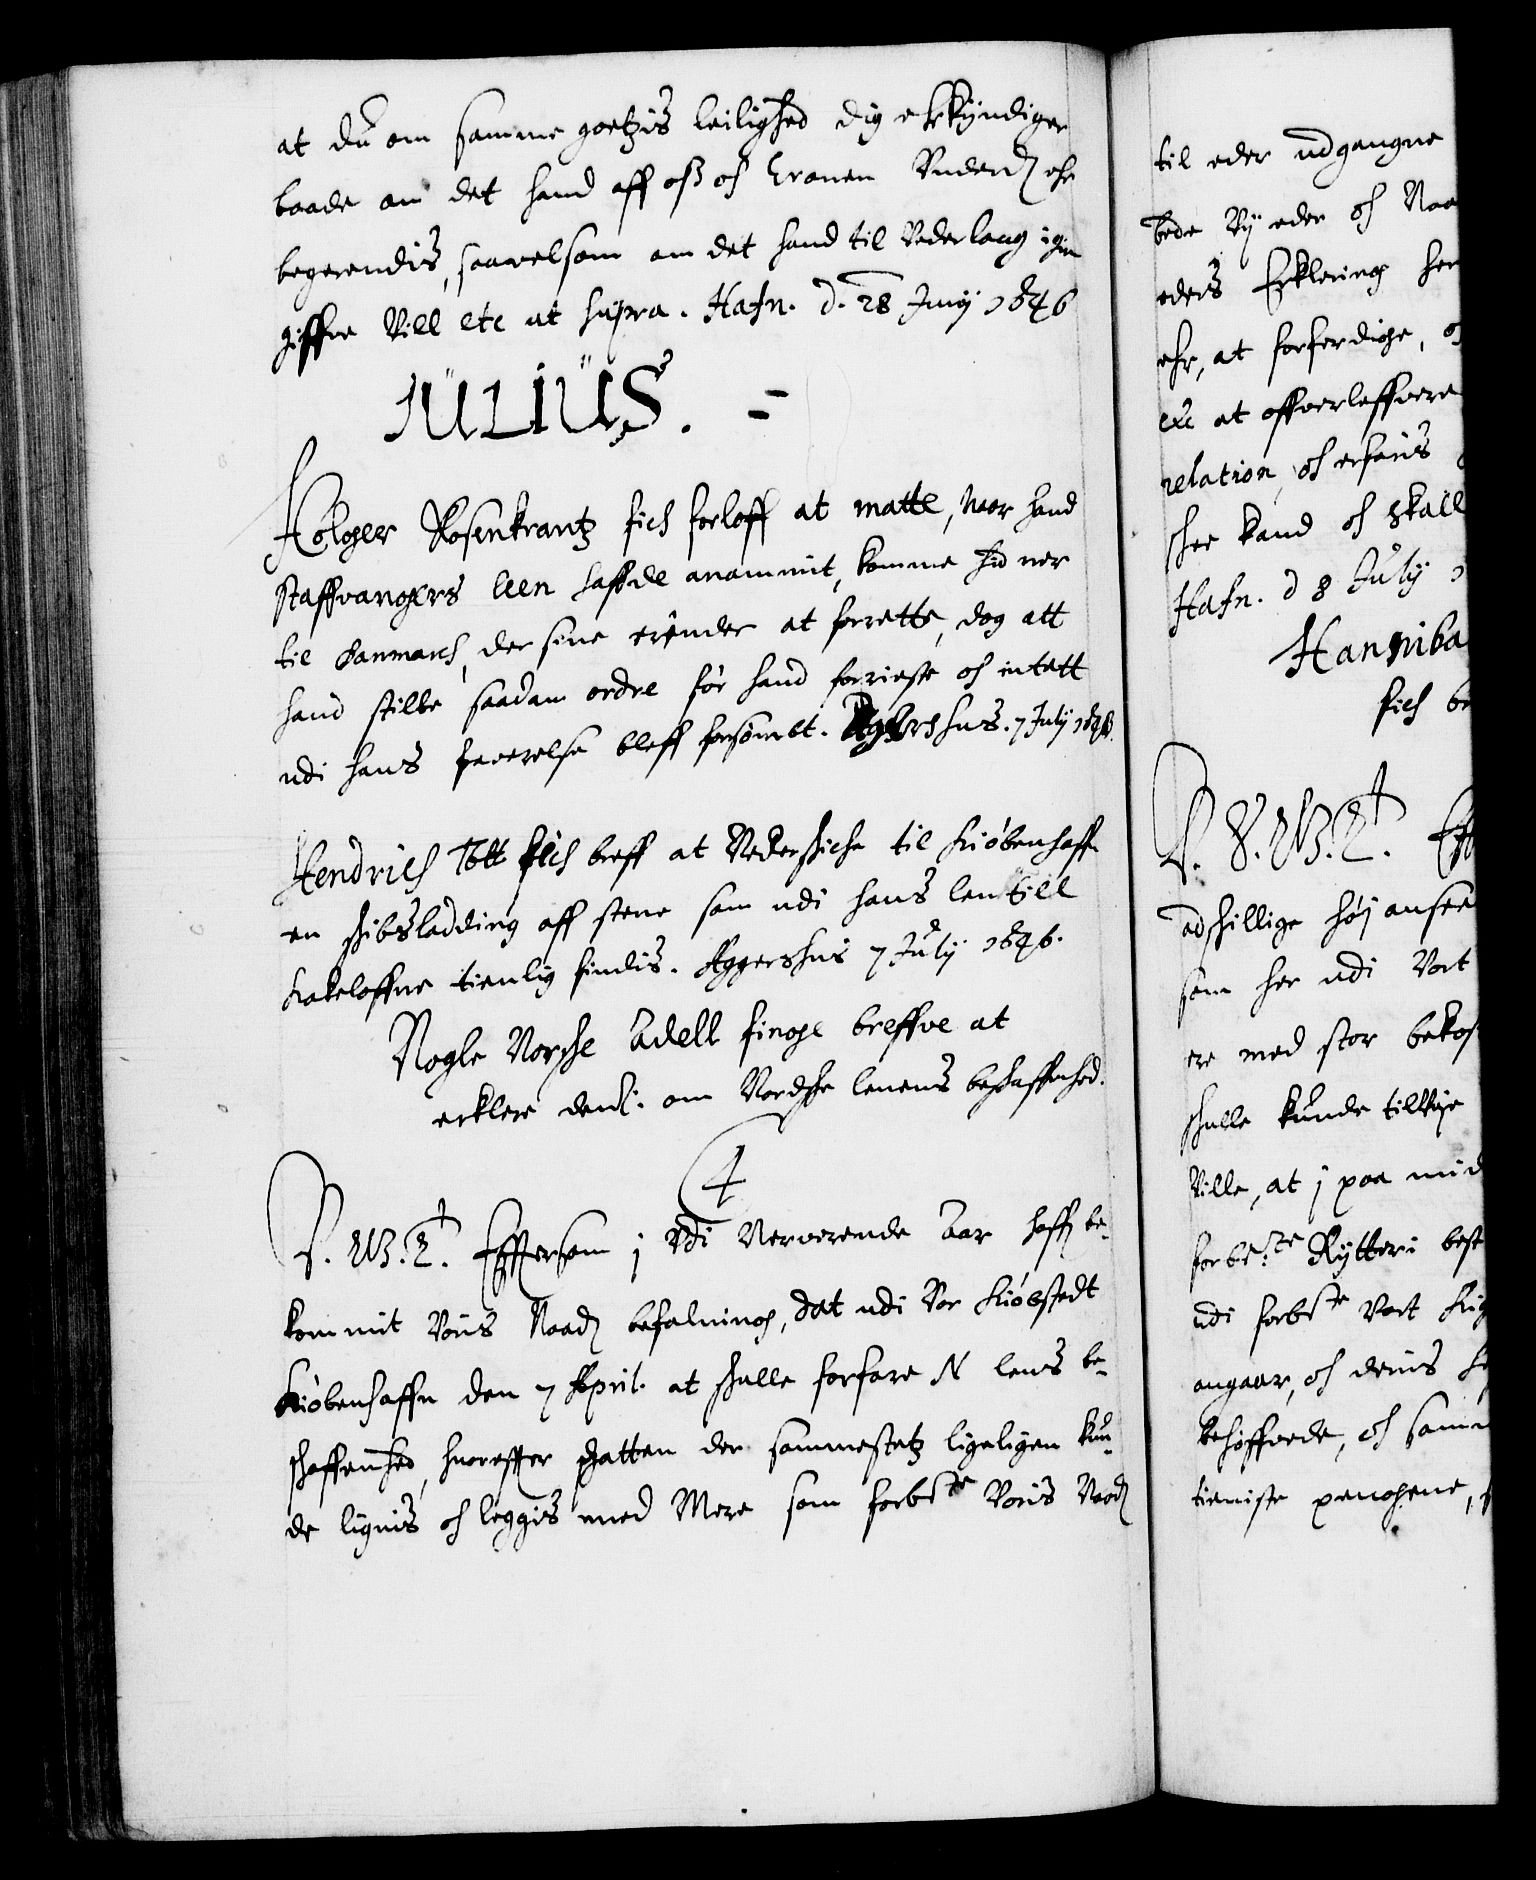 at du om samme goetzis leilighed dig erkyndiger
baade om det hand aff oß och Cronen Vnderd: ehr
begerendis, saavelsom om det hand til Vederlaug igen
giffue Vill etc ut supra. Hafn. d. 28 Juny 1646
JULIUS.
Holger Rosenkrantz fich forloff at matte, naar hand
Staffvangers leen haffde anammit, komme hid ner
til Danmarch, der sine erender at forrette, dog att
hand stille saadan ordre før hand forreiste och intett
udi hans fraverelse bleff forsømbt. Aggershus. 7 July 1646.
Hendrich Tott fich breff at Nederschiche til Kiøbenhaffn
en schibsladding aff stene som udi hans len till
kakeloffne tienlig findis. Aggershus 7 July 1646.
Nogle Norsche Adell finge breffve at
erklere denl: om Nordsche lenens beschaffenhed.
4
V. W. T. Effterson j udi Nerverende Aar haffr be-
kommit Voris Naad: befalning, dat udi Vor Kiøbstedt
Kiøbenhaffn den 7 April. at schulle forfare N lens be-
schaffenhed, huoreffter schatten der sammestetz ligeligen kun-
de lignis och leggis med Mere som forbete Voris Naad:
til eder udgangne
bede Vy eder och Naa
eders Erklering her
ehr, at forferdige, o
etc at offverleffvere
relation, och erfaris
schee kand och skall
Hafn. d 8 July 1
Hanniba
fich br
V. S. W. T. Eff
adschillige høj ansee
som her udi Vort
ere med stor bekos
schulle kunde tilVeye
Ville, at j paa mid
forbe:te Rytteri best
udi forbete Vort Rig
angaar, och deris
behøffvede, och sam
tieniste pengene,